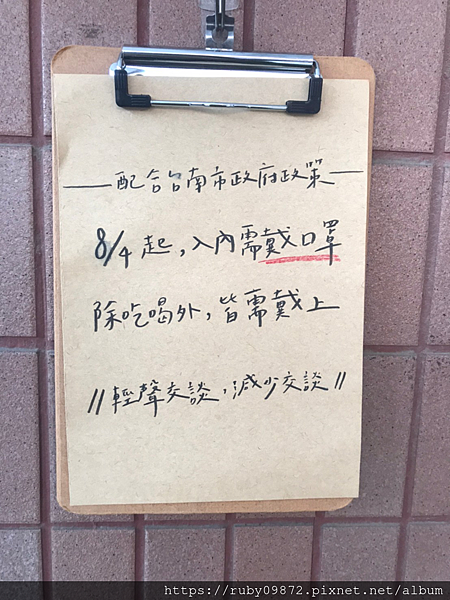 —配合台南市政府政策—
8/4起,入內需戴口罩
除吃喝外,皆需戴上
//輕聲交談,減少交談//
https://ruby09872.pixnet.net/album